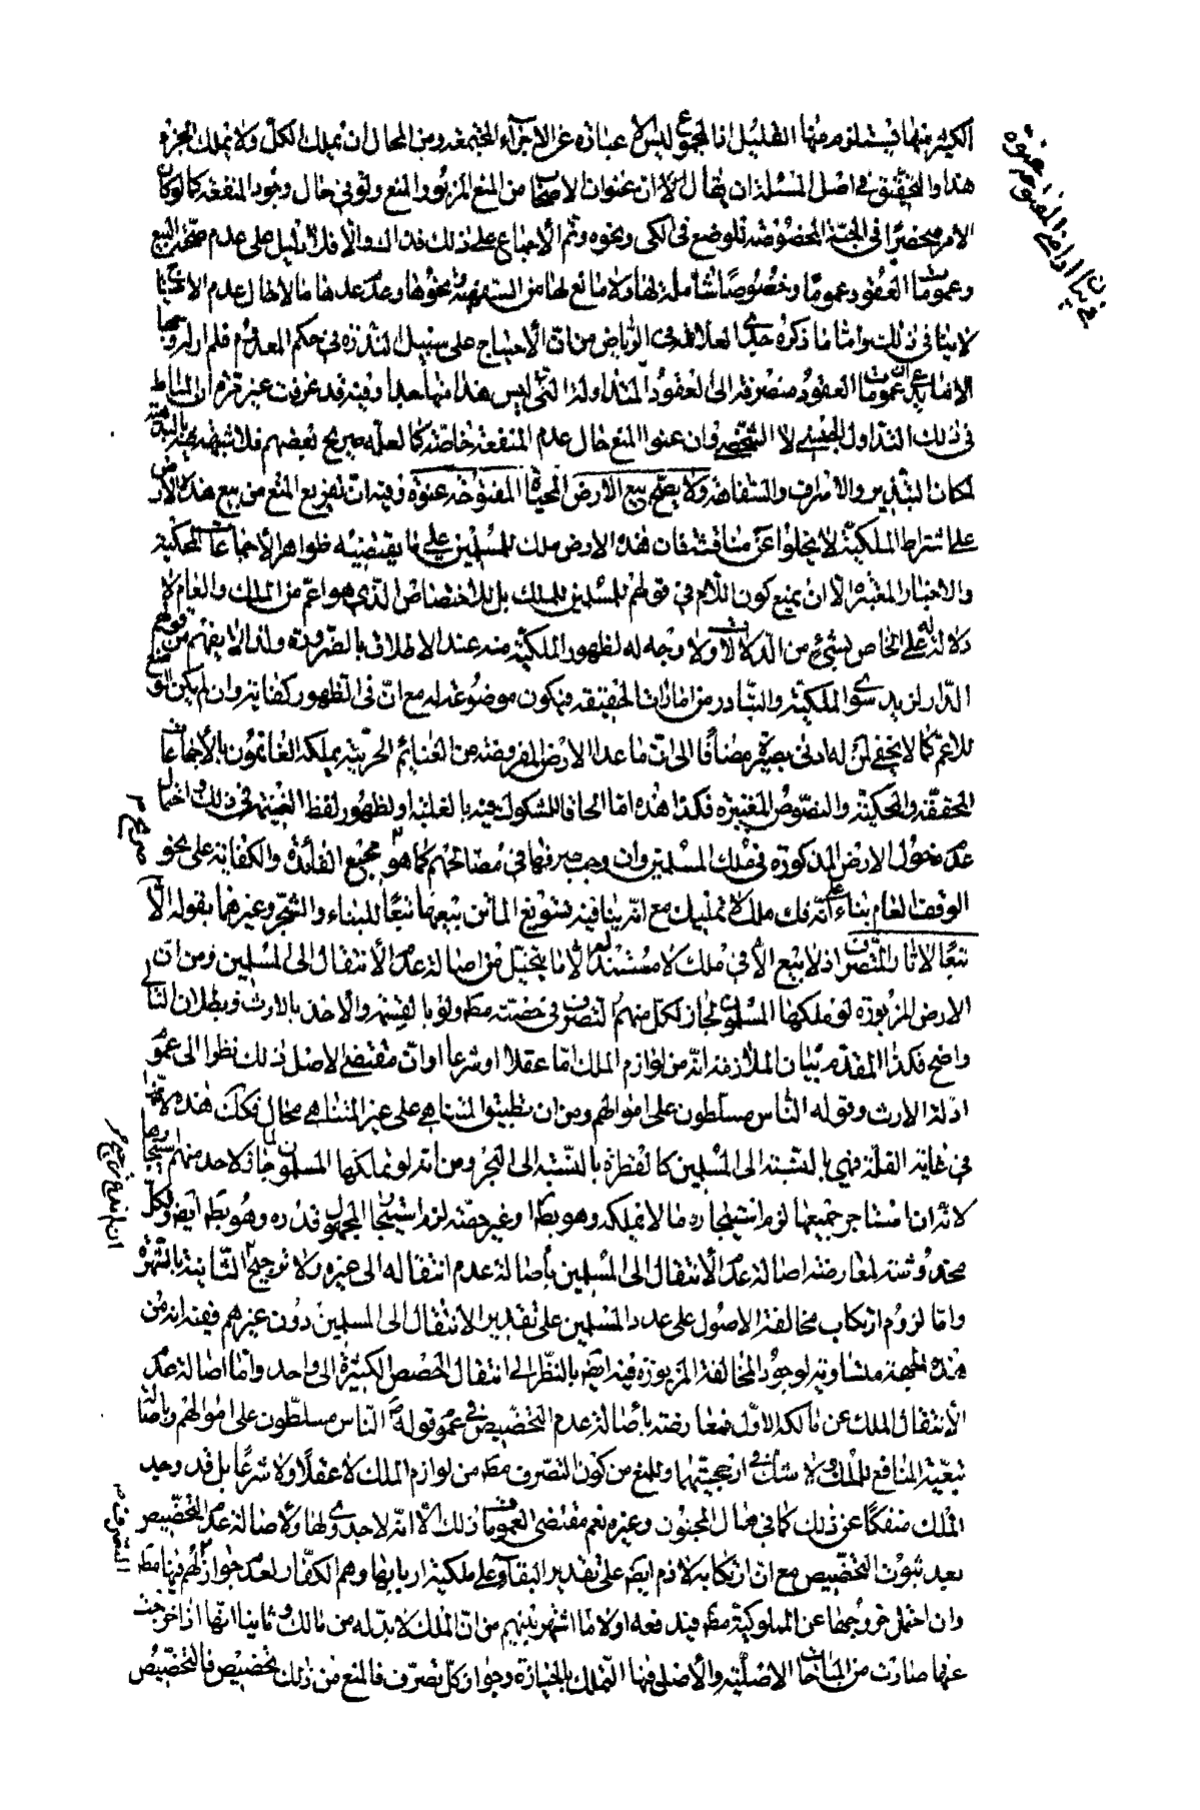 الكثير منها فيستلزم منها القليل اذ المجموع ليس الا عبارة عن الاجزاء المجتمعة ومن المحال ان يملك الكل ولا يملك الجزء
هذا والتحقيق في اصل المسئلة ان يقال الا ان عنوان الاصحاب من المنع المزبور المنع ولو في حال وجود المنفعة كما لو كان
الامر منحصرا في الجهة المخصوصة كالوضع في الكى ونحوه وتم الاجماع على ذلك فذاك والا فلا دليل على عدم صحة البيع
وعمومات العقود عموما وخصوصا شاملة لها ولا مانع لها من السفهية ونحوها وعد عدها مالا لها عدم الاحتياج
لا ينافي ذلك واما ما ذكره جدى العلامة في الرياض من ان الاحتياج على سبيل الندرة في حكم المعدوم فلم ار له وجها
الا ما عمومات العقود منصرفة الى العقود المتداولة التي ليس هذا منها جدا وفيه قد عرفت غير مرة ان المناط
في ذلك التداول الجنسي لا الشخصي وان عنوا المنع حال عدم المنفعة خاصة كما لعله صريح بعضهم فلا شبهة فيه بالبديهة
لمكان التبذير والاسراف والسفاهة ولا يصح بيع الارض المحياة المفتوحة عنوة وفيه ان تفريع المنع من بيع هذه الارض
على اشتراط الملكية لا يخلوا عن مناقشة فان هذه الارض ملك للمسلمين على ما يقتضيه ظواهر الاجماعات المحكية
والاخبار المعتبرة الا ان يمنع كون اللام في قولهم للمسلمين للملك بل للاختصاص الذي هو اعم من الملك والعام لا
دلالة له على الخاص بشيئ من الدلالات ولا وجه له لظهور الملكية منه عند الاطلاق بالضرورة ولذا لا يفهم من قولهم
الدار لزيد سوى الملكية والتبادر من امارات الحقيقة فيكون موضوعة له مع ان في الظهور كفاية وان لم يكن الوضع
للاعم كما لا يخفى لمن له ادنى بصيرة مضافا الى ان ما عدا الارض المفروضة من الغنائم الحربية يملكه الغانمون بالاجماعات
المحققة والمحكية والنصوص المعتبرة فكذا هذه اما الحاقا للمشكوك فيه بالغلبة او لظهور لفظ الغنيمة في ذلك واحتمال
عدم دخول الارض المذكورة في ملك المسلمين وان وجب صرفها في مصالحهم كما هو صريح مجمع الفائدة والكفاية على نحو
الوقف العام بناء على انه فك ملك لا تمليك مع انه ينافيه تسويغ الماتن بيعها تبعا للبناء والشجر وغيرهما بقوله الا
تبعا لآثار المتصرف اذ لا بيع الا في ملك لا مستند له الا ما يتخيل من اصالة عدم الانتقال الى المسلمين ومن ان
الارض المزبورة لو ملكها المسلمون لجاز لكل منهم التصرف في حصته مط ولو بالقسمة والاخذ بالارث وبطلان التالي
واضح فكذا المقدم بيان الملازمة انه من لوازم الملك اما عقلا او شرعا او ان مقتضى الاصل ذلك نظرا الى عموم
ادلة الارث وقوله الناس مسلطون على اموالهم ومن ان تطبيق المتناهي على غير المتناهي محال فكك هذه لانها
في غاية القلة فهي بالنسبة الى المسلمين كالقطرة بالنسبة الى البحر ومن انه لو تملكها المسلمون لما جاز لاحد منهم استيجارها
لانه ان استاجر جميعها لزم استيجاره ما لا يملكه وهو بط او غير حصته لزم استيجار المجهول قدره وهو بط ايض ولكل
مخدوشة لمعارضة اصالة عدم الانتقال الى المسلمين باصالة عدم انتقاله الى غيره ولا ترجيح الثانية بالشهرة
واما لزوم ارتكاب مخالفة الاصول على عدد المسلمين على تقدير الانتقال الى المسلمين دون غيرهم ففيه انه من
هذه الجهة متساوية لوجود المخالفة المزبورة فيه ايض بالنظر الى انتقال الحصص الكثيرة الى واحد واما اصالة عدم
الانتقال الملك عن مالكه الاول فمعارضة باصالة عدم التخصيص في عموم قوله الناس مسلطون على اموالهم وباصالة
تبعية المنافع للملك ولا شك في ارجحيتهما وللمنع من كون التصرف مط من لوازم الملك لا عقلا ولا شرعا بل قد وجد
الملك منفكا عن ذلك كما في مال المجنون وغيره نعم مقتضى العمومات ذلك الا انه لا جدوى لها ولاصالة عدم التخصيص
بعد ثبوت التخصيص مع ان ارتكابه لازم ايض على تقدير البقاء على ملكية اربابها وهم الكفار لعدم جواز لهم فيها مط
وان احتمل خروجها عن المملوكية مط فيدفعه اولا ما اشتهر بينهم من ان الملك لا بد له من مالك وثانيا انها اذا خرجت
عنها صارت من المباحات الاصلية والاصل فيها التملك بالحيازة وجواز كل تصرف فالمنع من ذلك تخصيص فالتخصيص
في بيان اراضي المفتوحة عنوة
صريح
التصرف